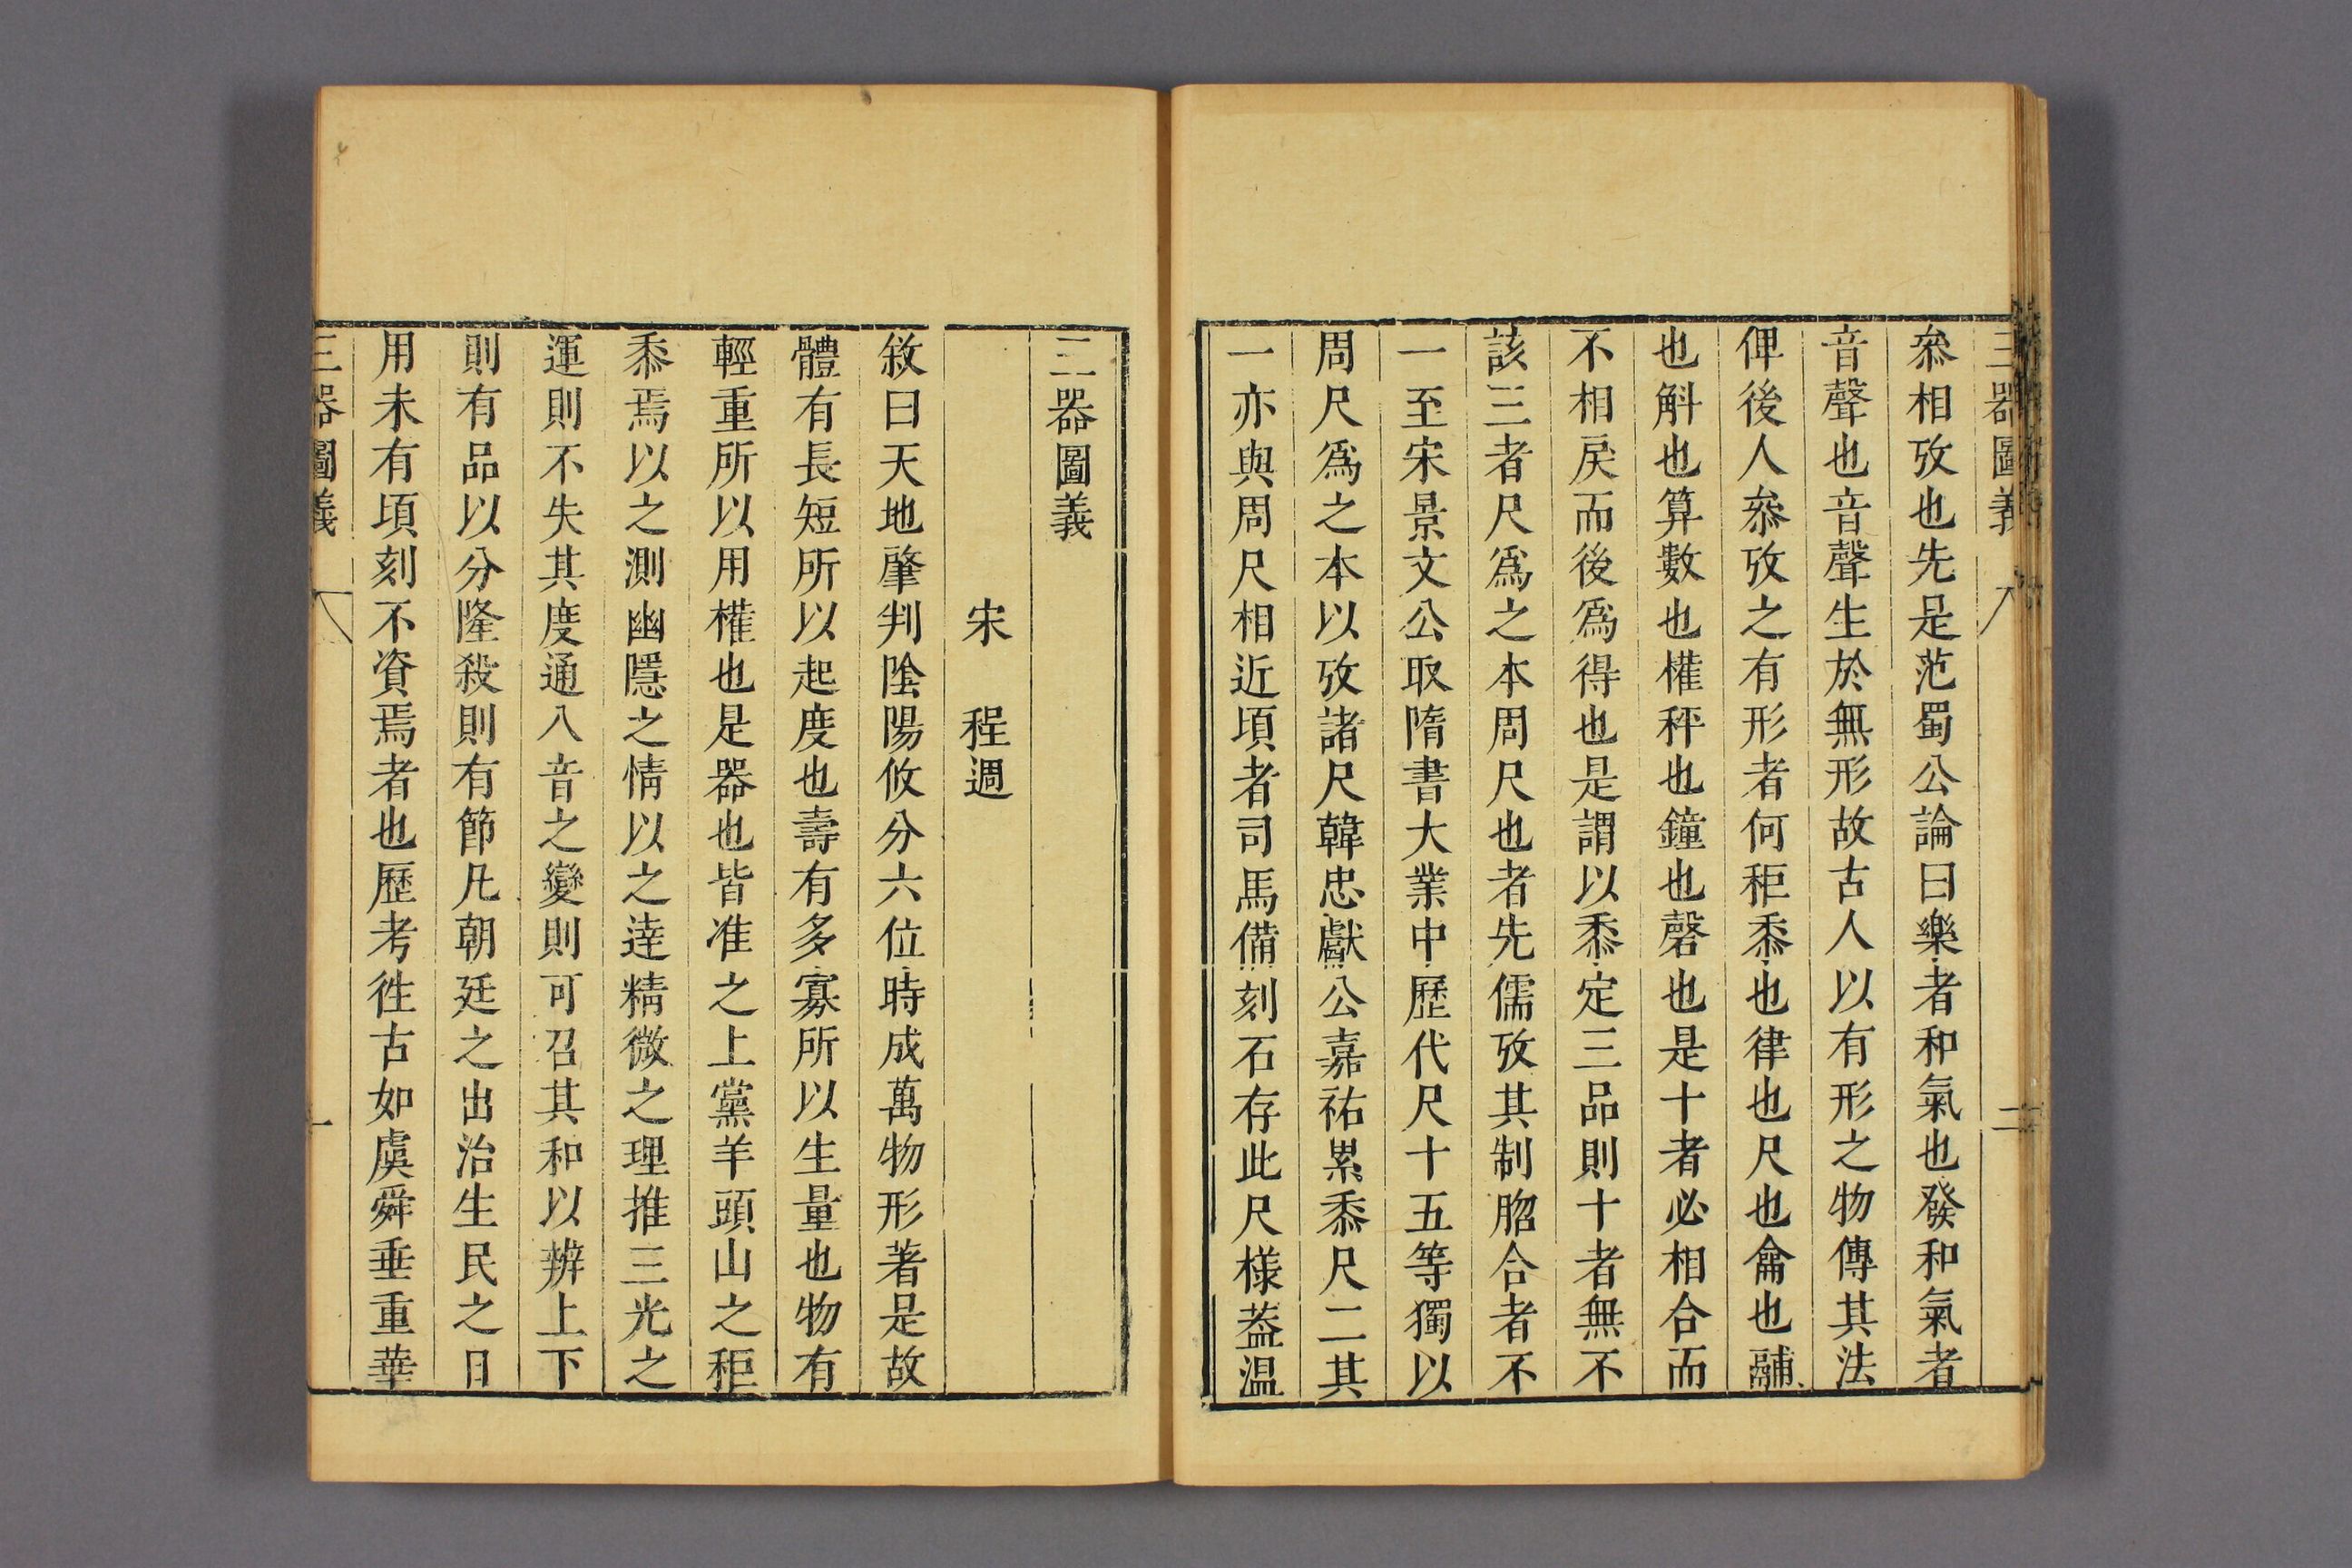 三器圖義 二
叅相攷也先是范蜀公論曰樂者和氣也發和氣者
音聲也音聲生於無形故古人以有形之物傳其法
俾後人叅攷之有形者何秬黍也律也尺也龠也鬴
也斛也算數也權秤也鐘也磬也是十者必相合而
不相戾而後爲得也是謂以黍定三品則十者無不
該三者尺爲之本周尺也者先儒攷其制脗合者不
一至宋景文公取隋書大業中歷代尺十五等獨以
周尺爲之本以攷諸尺韓忠獻公嘉祐累黍尺二其
一亦與周尺相近頃者司馬備刻石存此尺樣葢温
三器圖義
宋 程迥
敘曰天地肇判陰陽攸分六位時成萬物形著是故
體有長短所以起度也壽有多寡所以生量也物有
輕重所以用權也是器也皆准之上黨羊頭山之秬
黍焉以之測幽隱之情以之達精微之理推三光之
運則不失其度通八音之變則可召其和以辨上下
則有品以分隆殺則有節凡朝廷之出治生民之日
用未有頃刻不資焉者也歷考徃古如虞舜垂重華
三器圖義 一